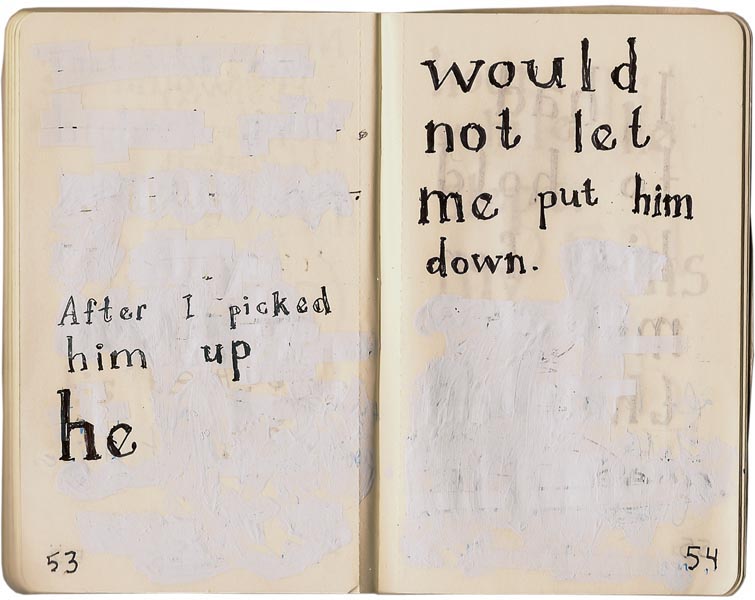 After I picked
him up
he
53
would
not let
me put him
down.
54